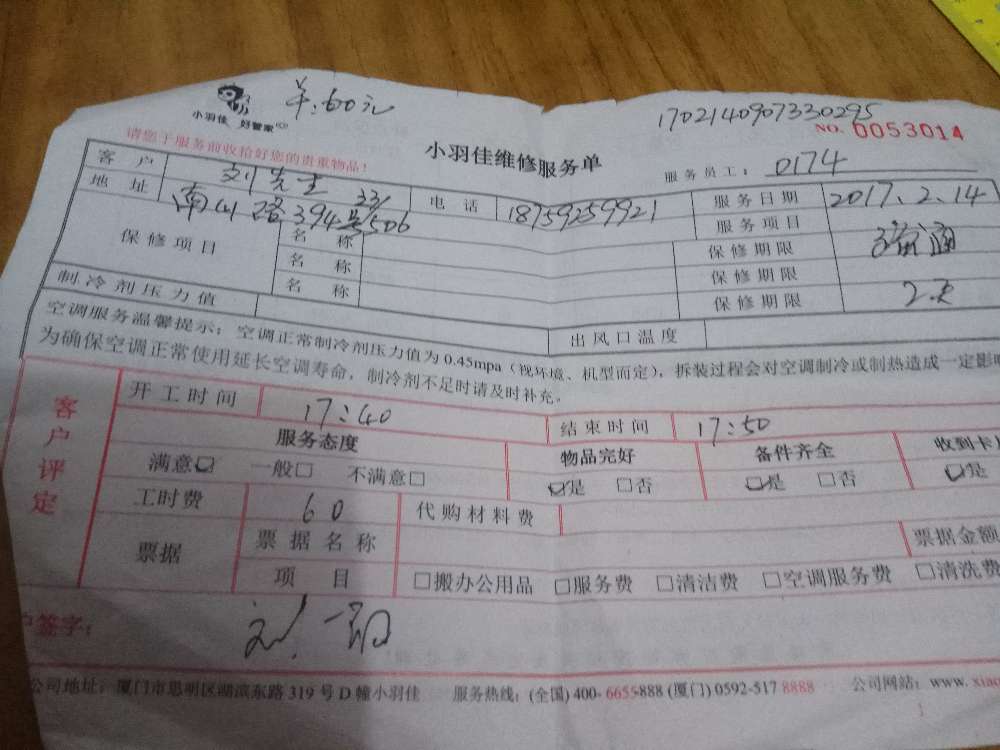 小羽佳 好管家
单:60元
1702140907330295
NO. 0053014
请您于服务前收拾好您的贵重物品!
小羽佳维修服务单
服务员工: 0174
客户 刘先生 电话 18759259921 服务日期 2017.2.14
地址 南山路394号 33/506 服务项目 疏通
保修项目 名称 保修期限 2天
名称 保修期限
名称 保修期限
制冷剂压力值 出风口温度
空调服务温馨提示:空调正常制冷剂压力值为0.45mpa(视环境、机型而定),拆装过程会对空调制冷或制热造成一定影
为确保空调正常使用延长空调寿命,制冷剂不足时请及时补充。
客户评定
开工时间 17:40 结束时间 17:50
服务态度 物品完好 备件齐全 收到卡
满意☑ 一般□ 不满意□ ☑是 □否 ☑是 □否 ☑是
工时费 60 代购材料费
票据 票据名称 票据金额
项目 □搬办公用品 □服务费 □清洁费 □空调服务费 □清洗费
户签字:
公司地址:厦门市思明区湖滨东路319号D幢小羽佳 服务热线:(全国)400-6655888(厦门)0592-5178888 公司网站:www.xiao